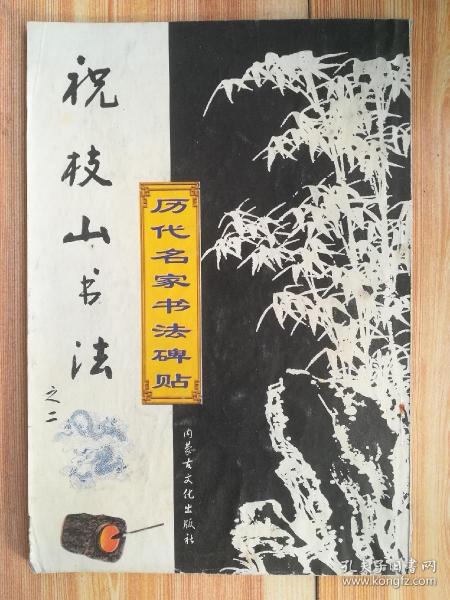 祝枝山书法
之二
历代名家书法碑贴
内蒙古文化出版社
孔夫子旧书网
www.kongfz.com